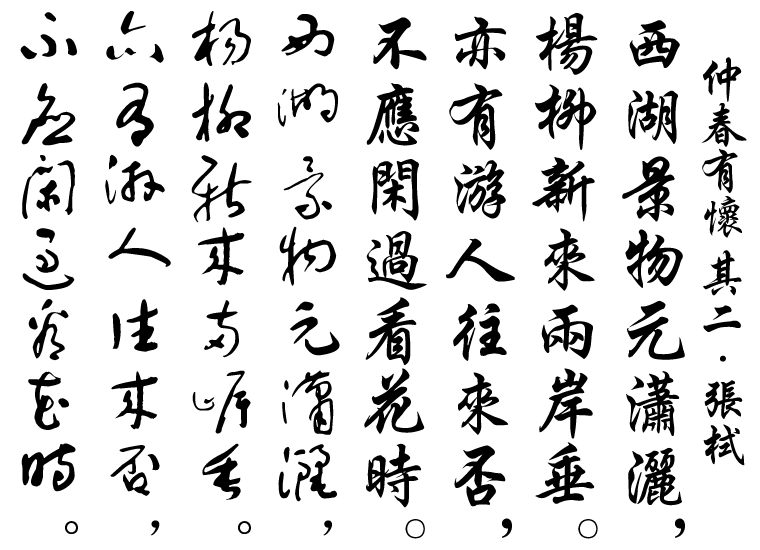 仲春有懷其二·張栻
西湖景物元瀟灑，
楊柳新來兩岸垂。
亦有游人往來否，
不應閑過看花時。
西湖景物元瀟灑，
楊柳新來兩岸垂。
亦有游人往來否，
不應閑過看花時。